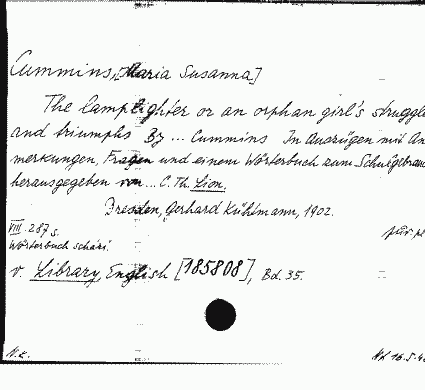 Cummins, [Maria Susanna]
The lamplighter or an orphan girl's struggle
and triumphs By ... Cummins In Auszügen mit An
merkungen, Fragen und einem Wörterbuch zum Schulgebrau
herausgegeben von ... C. Th. Lion.
Dresden, Gerhard Kühtmann, 1902.
VIII. 287 s.
Wörterbuch
v. Library, English [185808], Bd. 35.
N.k.
16.5.4